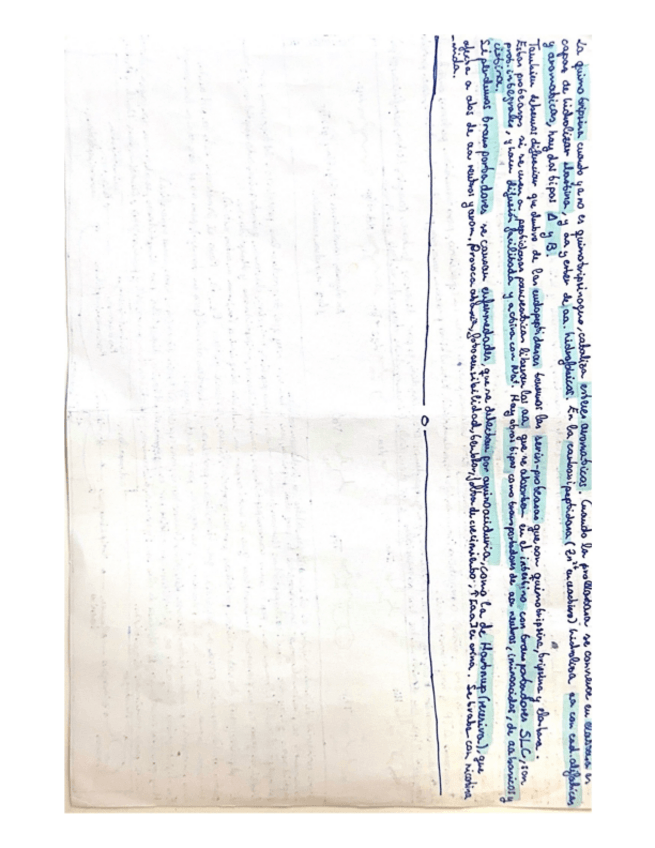 La quimotripsina cuando ya no es quimotripsinogeno, cataliza esteres aromaticos. Cuando la proelastasa se convierte en elastasa es
capaz de hidrolizar elastina, y aa y ester de aa. hidrofobicos. En la carboxipeptidasa (Zn²⁺ en centro activo) hidroliza aa con cad. alifaticas
y aromaticas, hay dos tipos A y B.
Tambien debemos diferenciar que dentro de las endopeptidasas tenemos las serin-proteasas que son quimotripsina, tripsina y elastasa.
Estas proteasas si se unen a peptidasas pancreaticas liberan los aa que se absorben en el intestino con transportadores SLC, son
prot. integrales, y hacen difusión facilitada y activa con Na⁺. Hay otros tipos como transportadores de aa neutros, iminoacidos, de aa basicos y
cistina.
Si perdemos transportadores se causan enfermedades, que se detectan por aminoaciduria, como la de Hartnup (recesiva), que
afecta a abs de aa neutros y arom. Provoca ataxia, fotosensibilidad, temblor, falta de crecimiento, ↑[aa] en orina. Se trata con nicotina
-mida.